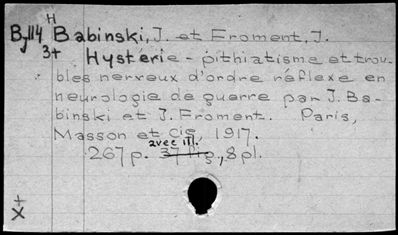 H
By114 Babinski, J. et Froment, J.
3+ Hystérie - pithiatisme et trou-
bles nerveux d'ordre réflexe en
neurologie de guerre par J. Ba-
binski et J. Froment. Paris,
Masson et cie, 1917.
avec ill.
267 p. 37 fig, 8 pl.
+
X